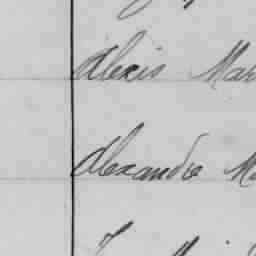 Alexis Mar
Alexandre Ma